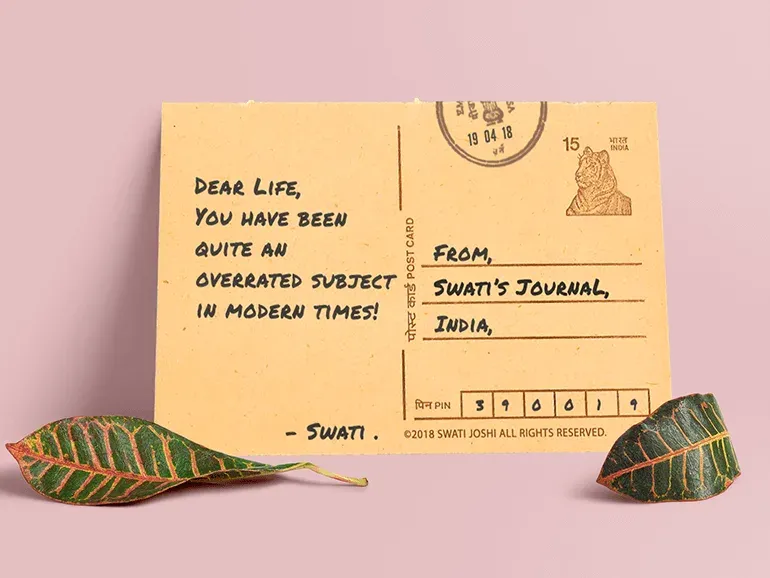 Dear Life,
You have been
quite an
overrated subject
in modern times!
- Swati .
19 04 18
15 भारत
INDIA
पोस्ट कार्ड POST CARD
From,
Swati's Journal,
India,
पिन PIN 3 9 0 0 1 9
©2018 SWATI JOSHI ALL RIGHTS RESERVED.